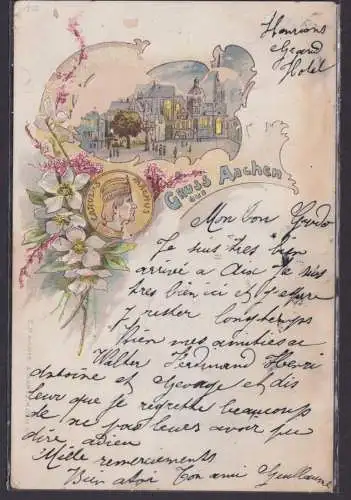 Henrions
Grand
Hotel
CAROLUS MAGNUS
Gruss aus Aachen
Mon bon Guido
Je suis très bien
arrivé a Aix Je suis
tres bien ici et j'espere
J rester longtemps
bien mes amitiés a
Walter Ferdinand Henri
Antoine et George et dis
leur que je regrette beaucoup
de ne pas leurs avoir pu
dire adieu
Mille remerciements
Bien a toi Ton ami Guillaume